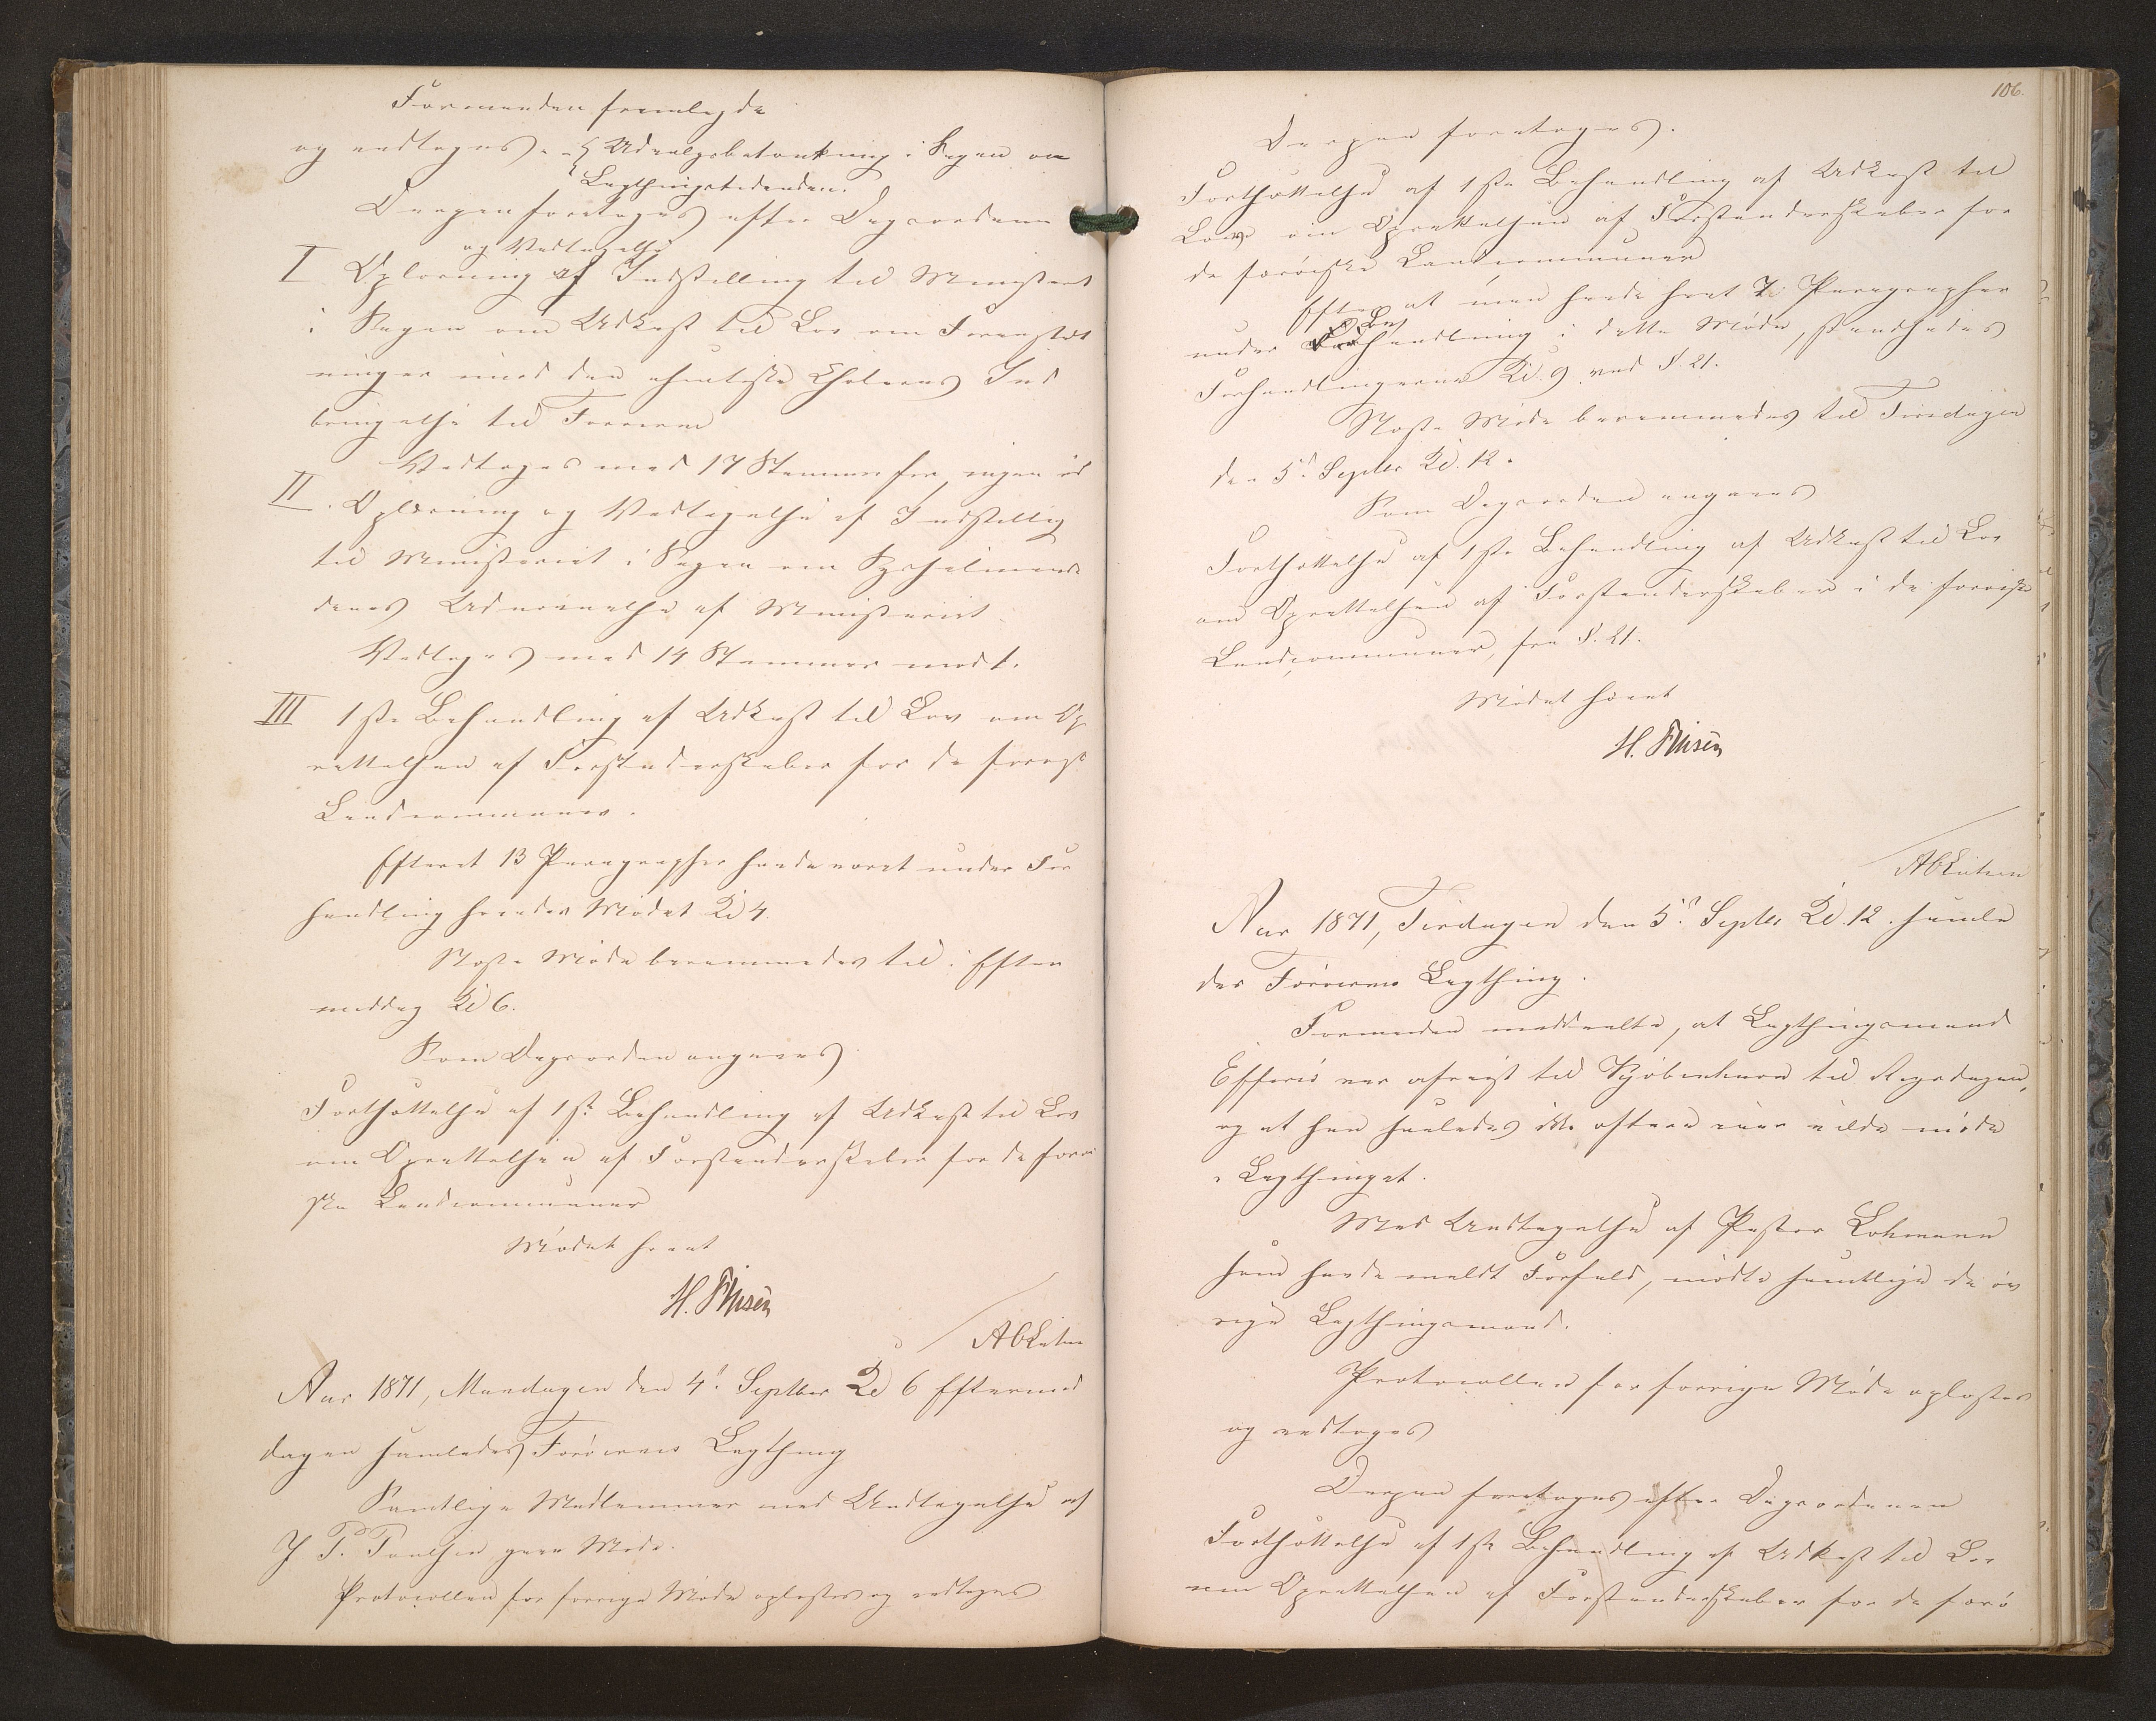 Formanden fremlagde
og vedtoges. Udvalgsbetænkning i Sagen om
Lagthingstidenden.
Derpaa foretoges efter Dagsordenen
og Vedtagelse
I. Oplæsning af Indstilling til Ministeriet
i Sagen om Udkast til Lov om Foranstalt
ninger mod den asiatiske Choleras Ind
bringelse til Færøerne
Vedtoges med 17 Stemmer for, ingen imod
II. Oplæsning og Vedtagelse af Indstilling
til Ministeriet i Sagen om Sysselmænde
denes Udnævnelse af Ministeriet.
Vedtoges med 14 Stemmer mod 1.
III 1ste Behandling af Udkast til Lov om Op
rettelsen af Forstanderskaber for de færøiske
Landcommuner.
Efterat 13 Paragrapher havde været under For
handling hævedes Mødet Kl 4.
Næste Møde berammedes til i Efter
middag Kl 6.
Som Dagsorden angaves
Fortsættelse af 1ste Behandling af Udkast til Lov
om Oprettelsen af Forstanderskaber for de færøi
ske Landcommuner
Mødet hævet
H. Finsen
Aar 1871, Mandagen den 4de Septbr Kl 6 Eftermid
dagen samledes Færøernes Lagthing
Samtlige Medlemmer med Undtagelse af
J P. Poulsen gave Møde.
Protocollen for forrige Møde oplæstes og vedtoges
106.
Derpaa foretoges.
Fortsættelse af 1ste Behandling af Udkast til
Lov om Oprettelsen af Forstanderskaber for
de færøiske Landcommuner
Efter at man havde havt Paragrapher
under Behandling i dette Møde, standsedes
Forhandlingerne Kl. 9 ved §. 21.
Næste Møde berammedes til Tirsdagen
den 5te Septbr Kl. 12.
Som Dagsorden angaves
Fortsættelse af 1ste Behandling af Udkast til Lov
om Oprettelsen af Forstanderskaber i de færøiske
Landcommuner, fra §. 21.
Mødet hævet
H. Finsen
Aar 1871, Tirsdagen den 5te Septbr Kl. 12. samle
des Færøernes Lagthing.
Formanden meddeelte, at Lagthingsmand
Effersö var afreist til Kjøbenhavn til Rigsdagen,
og at han saaledes ikke oftere iaar vilde møde
i Lagthinget.
Med Undtagelse af Pastor Lohmann
som havde meldt Forfald, mødte samtlige de øv
rige Lagthingsmænd.
Protocollen for forrige Møde oplæstes
og vedtoges
Derpaa foretoges efter Dagsordenen
Fortsættelse af 1ste Behandling af Udkast til Lov
om Oprettelsen af Forstanderskaber for de færø